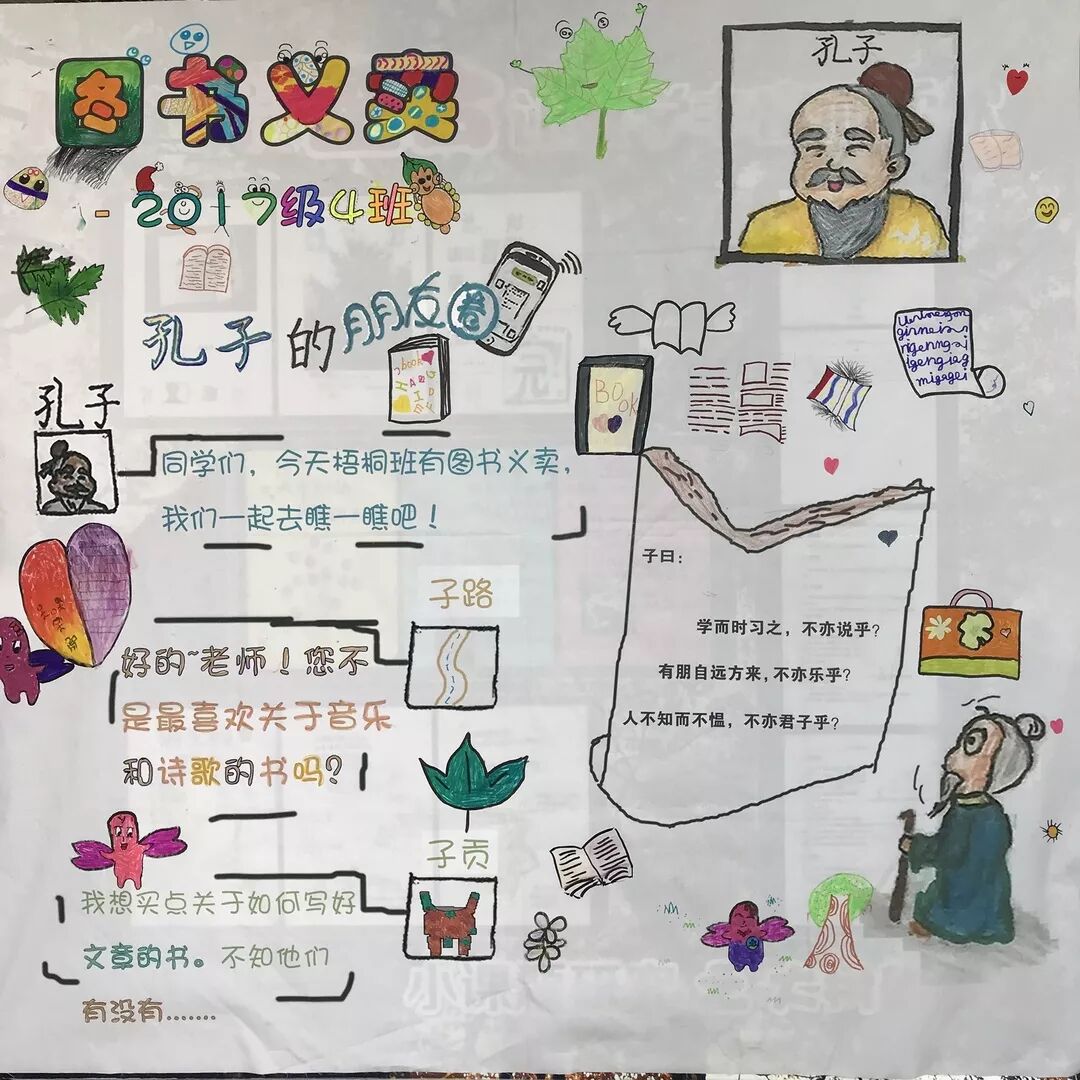 图书义卖
- 2017级4班
孔子的朋友圈
孔子
孔子
BOOK
同学们，今天梧桐班有图书义卖，
我们一起去瞧一瞧吧！
子路
好的~老师！您不
是最喜欢关于音乐
和诗歌的书吗？
子贡
我想买点关于如何写好
文章的书。不知他们
有没有.......
子曰：
学而时习之，不亦说乎？
有朋自远方来，不亦乐乎？
人不知而不愠，不亦君子乎？